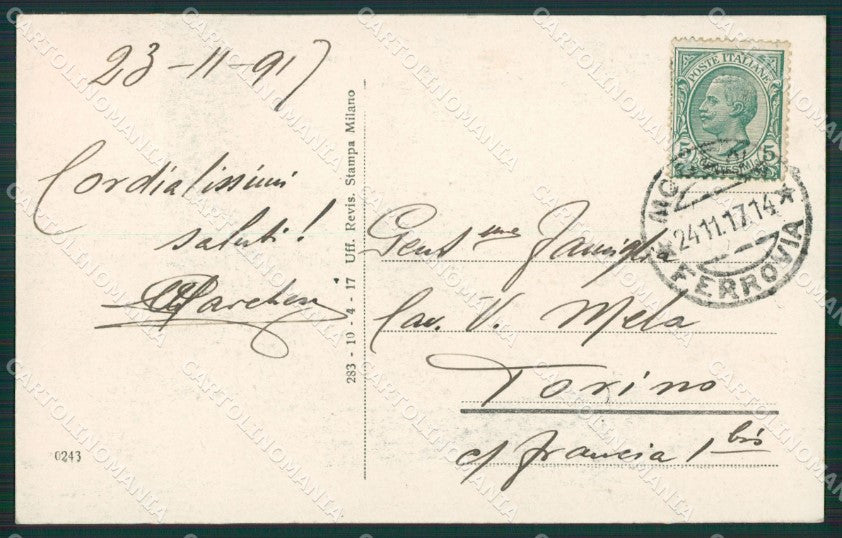 23-11-917
Cordialissimi
saluti!
283 - 10 - 4 - 17 Uff. Revis. Stampa Milano
0243
POSTE ITALIANE
5 5
24.11.17.14
FERROVIA
Gent.me Famiglia
Cav. V. Mela
Torino
c/ Francia 1 bis
CARTOLINOMANIA